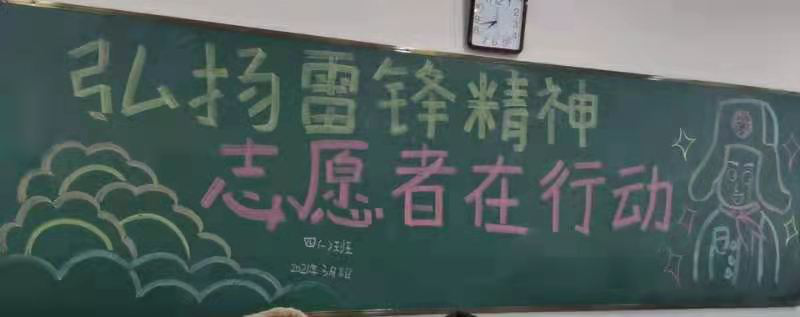 弘扬雷锋精神
志愿者在行动
四(一)班
2021年3月